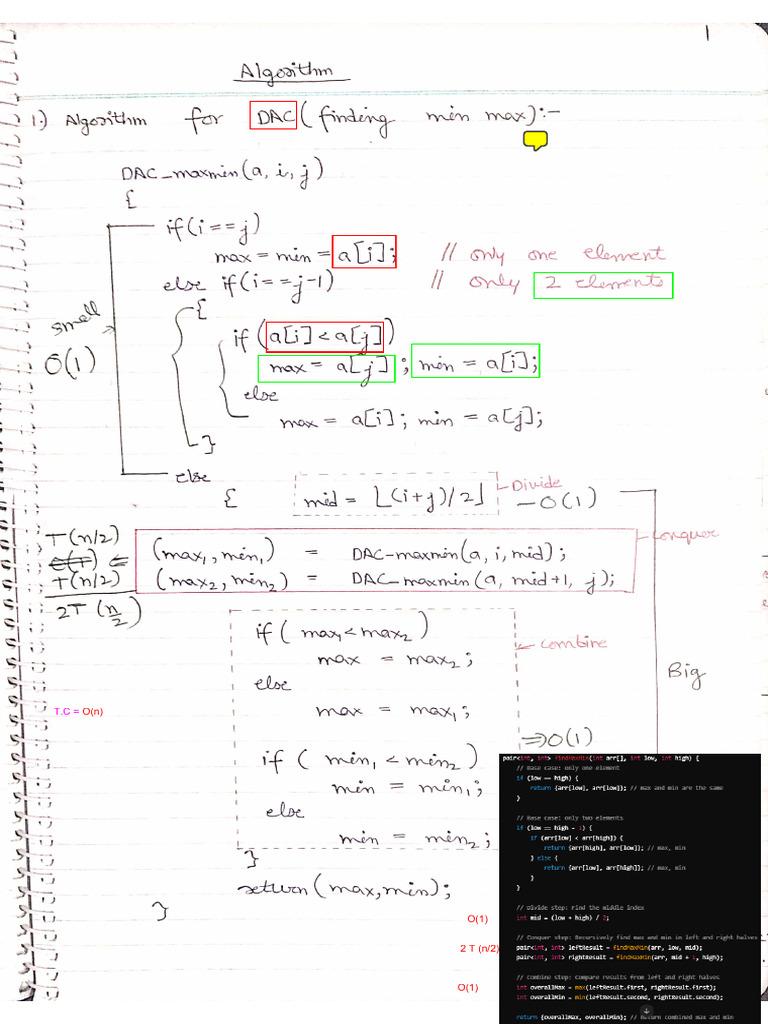 1
Algorithm
1.) Algorithm for DAC (finding min max):-
DAC_maxmin(a, i, j)
{
if(i==j)
max = min = a[i]; // only one element
else if(i==j-1) // only 2 elements
{
small
O(1)
if(a[i]<a[j])
max = a[j]; min = a[i];
else
max = a[i]; min = a[j];
}
else
{ mid = ⌊(i+j)/2⌋ - Divide
- O(1)
T(n/2)
T(n/2)
2T(n/2)
(max₁, min₁) = DAC-maxmin(a, i, mid);
(max₂, min₂) = DAC-maxmin(a, mid+1, j);
Conquer
if( max₁<max₂)
max = max₂;
combine
else
max = max₁;
Big
T.C = O(n)
⇒O(1)
if ( min₁ < min₂)
min = min₁;
else
min = min₂;
}
return(max,min);
}
O(1)
2 T (n/2)
O(1)
pair<int, int> findMaxMin(int arr[], int low, int high) {
// Base case: only one element
if (low == high) {
return {arr[low], arr[low]}; // max and min are the same
}
// Base case: only two elements
if (low == high - 1) {
if (arr[low] < arr[high]) {
return {arr[high], arr[low]}; // max, min
} else {
return {arr[low], arr[high]}; // max, min
}
}
// Divide step: Find the middle index
int mid = (low + high) / 2;
// Conquer step: Recursively find max and min in left and right halves
pair<int, int> leftResult = findMaxMin(arr, low, mid);
pair<int, int> rightResult = findMaxMin(arr, mid + 1, high);
// Combine step: Compare results from left and right halves
int overallMax = max(leftResult.first, rightResult.first);
int overallMin = min(leftResult.second, rightResult.second);
return {overallMax, overallMin}; // Return combined max and min